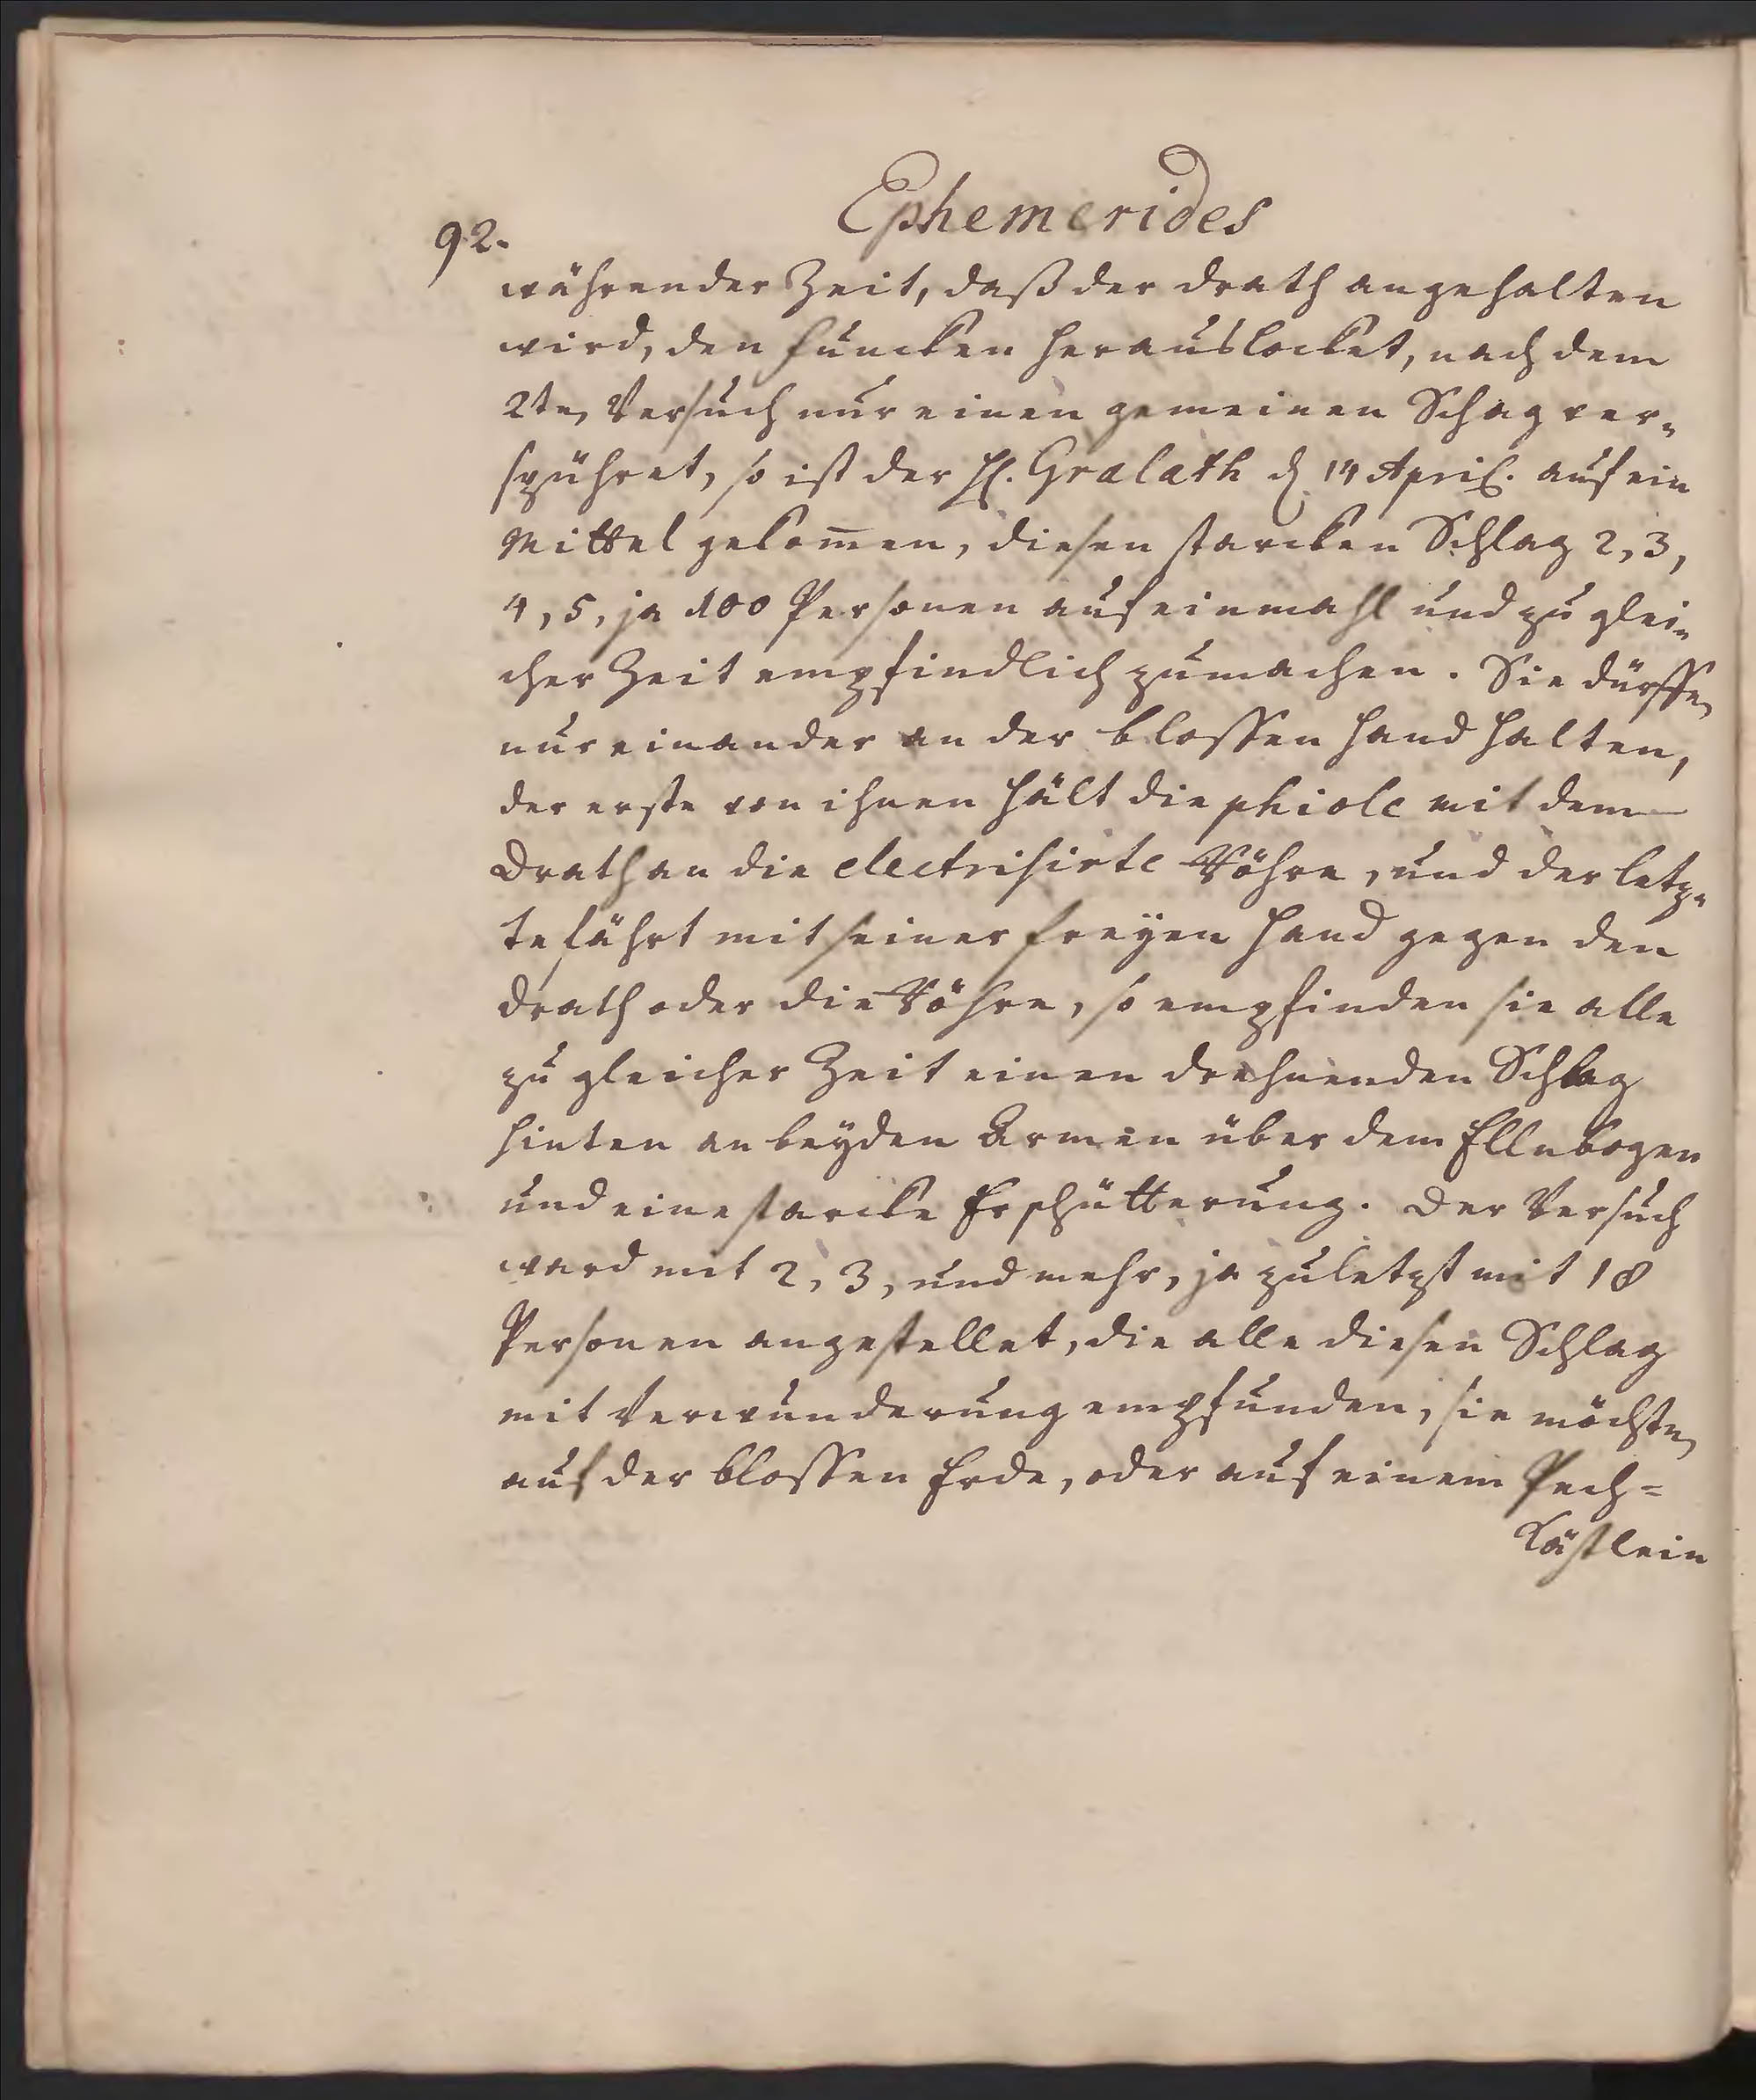 Ephemerides
92.
währender Zeit, daß der drath angehalten
wird, den funcken herauslocket, nach dem
2ten Versuch nur einen gemeinen Schag ver-
spühret, so ist der H. Gralath d 14 April. auf ein
Mittel gekom̄en, diesen starcken Schlag 2, 3,
4, 5, ja 100 Personen auf einmahl und zu glei-
cher Zeit empfindlich zumachen. Sie dürffen
nur einander an der blossen Hand halten,
der erste von ihnen hält die phiole mit dem
Drath an die electrisirte Röhre, und der letz-
te fährt mit seiner freyen Hand gegen den
drath oder die Röhre, so empfinden sie alle
zu gleicher Zeit einen drehnenden Schlag
hinten an beyden Armen über dem Ellnbogen
und eine starcke Erschütterung. Der Versuch
ward mit 2, 3, und mehr, ja zuletzt mit 18
Personen angestellet, die alle diesen Schlag
mit Verwunderung empfunden, sie möchten
auf der blossen Erde, oder auf einem Pech=
kästlein